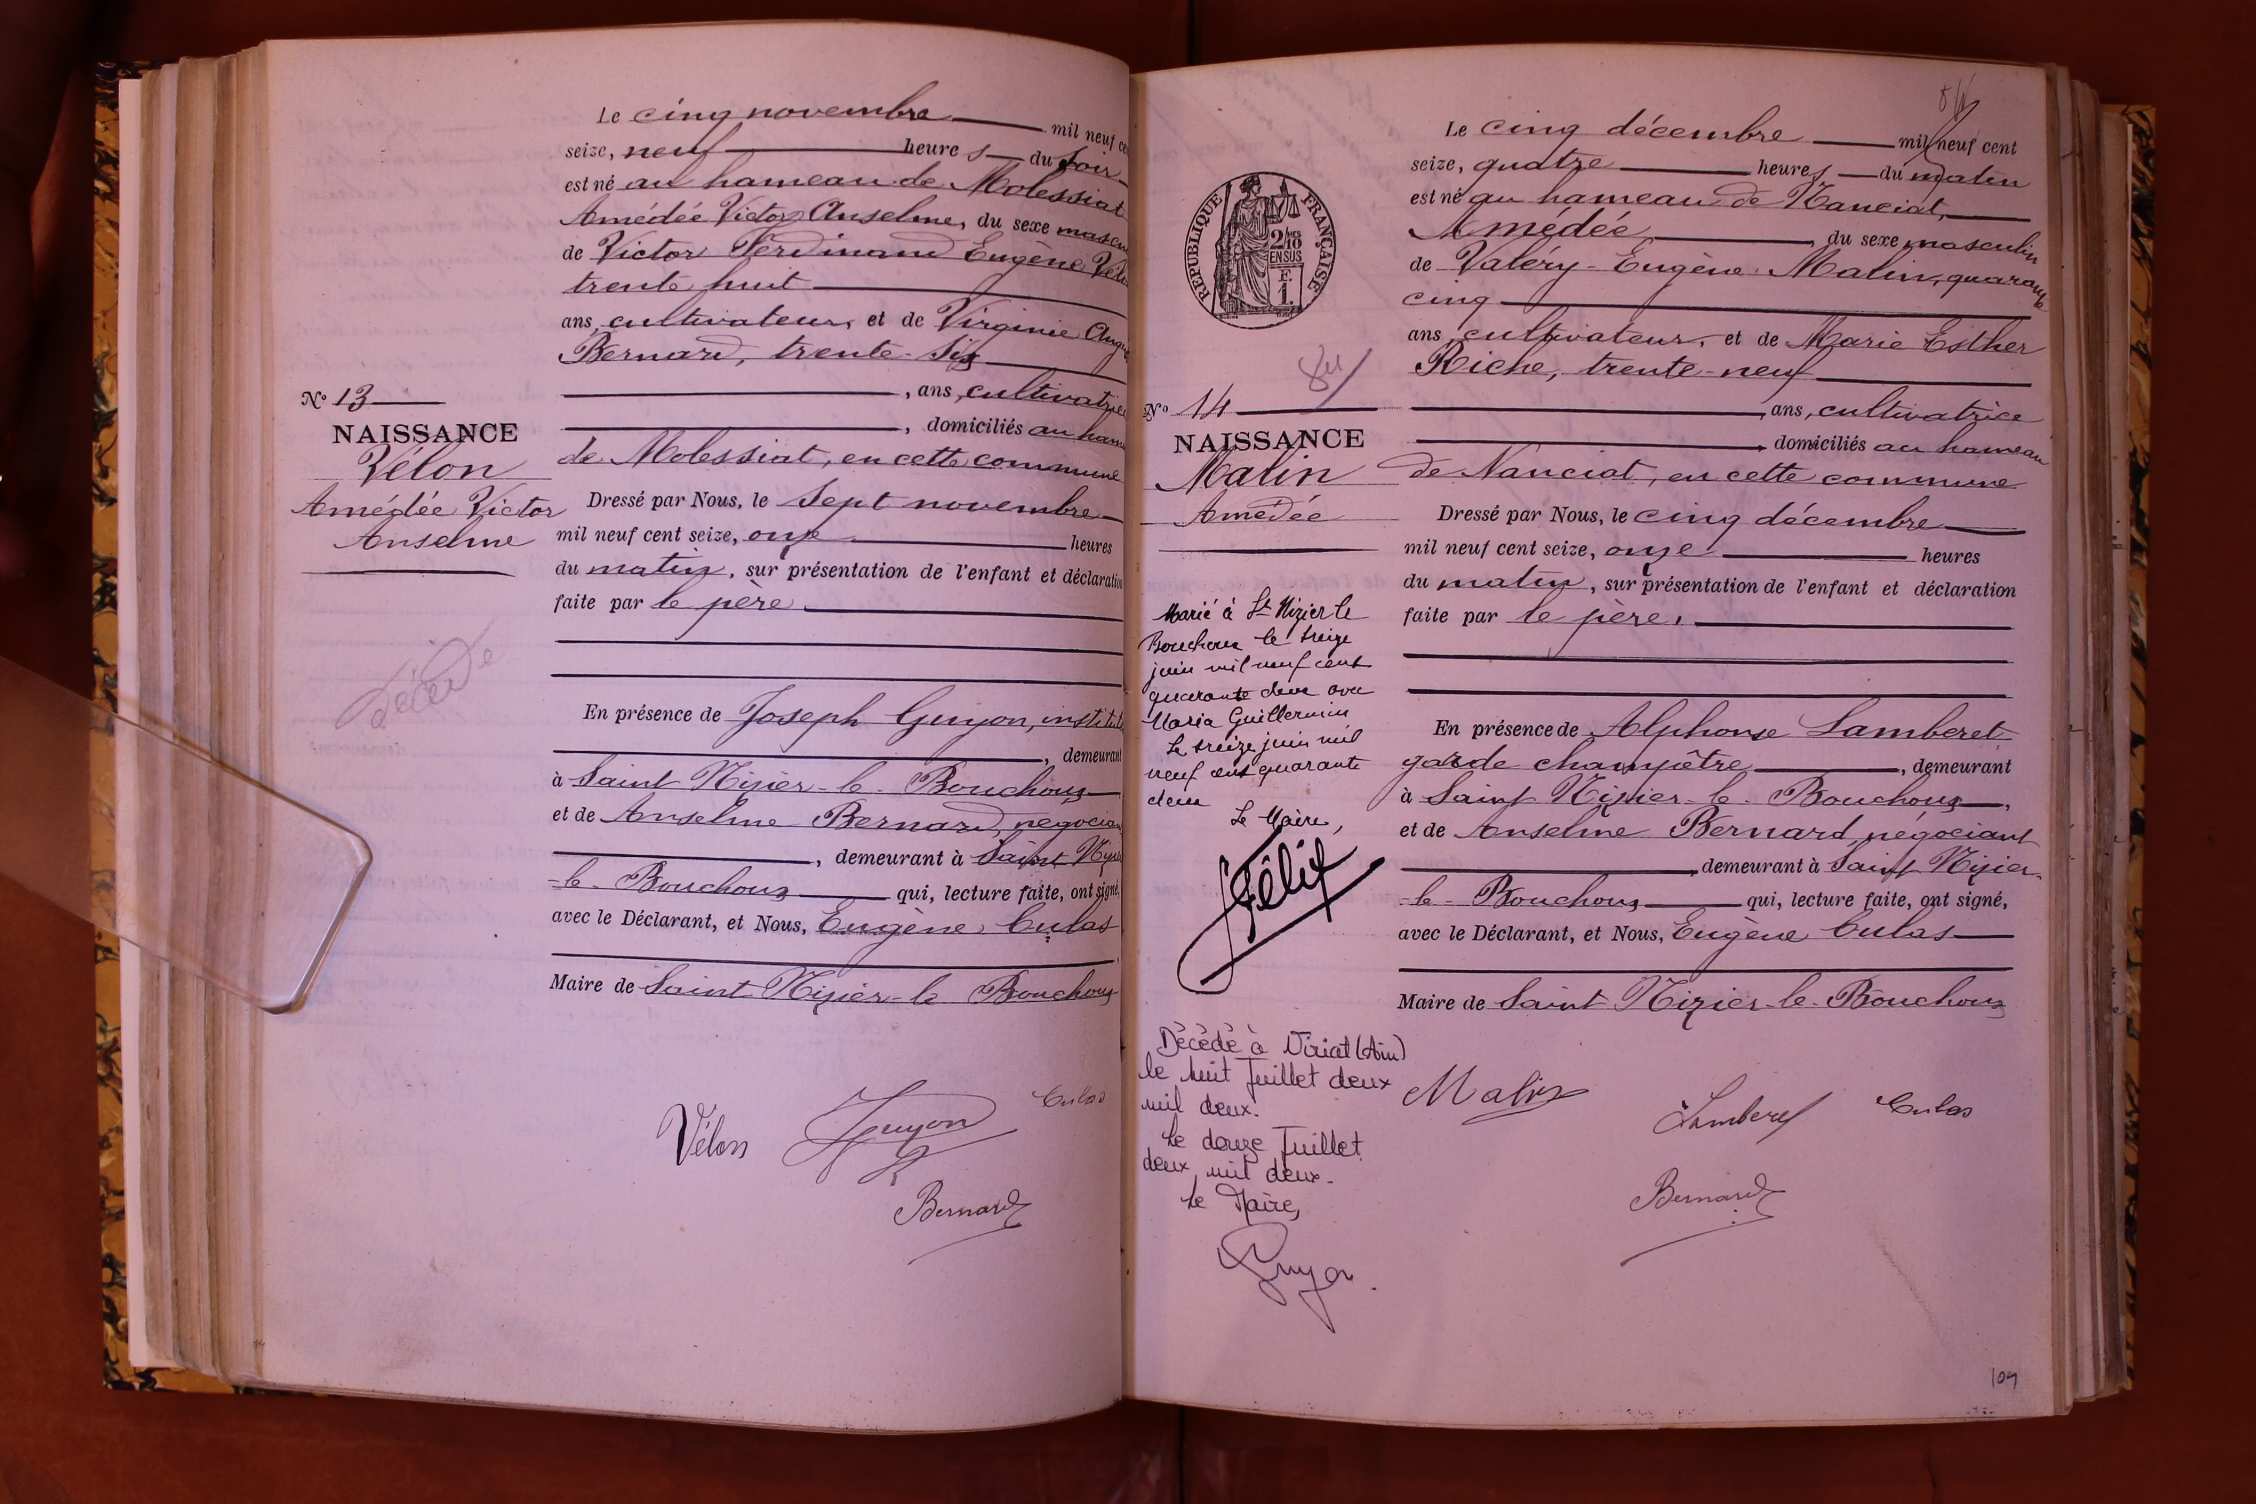 Le cinq novembre mil neuf ce
seize, neuf heures du soir
est né au hameau de Molessiat
Amédée Victor Anselme, du sexe mascu
de Victor Ferdinand Eugène Vélo
trente huit
ans, cultivateur, et de Virginie Augu
Bernard, trente-six
, ans, cultivatrice
Nº 13
, domiciliés au ham
NAISSANCE
Vélon
de Molessiat, en cette commune
Amédée Victor
Anselme
Dressé par Nous, le sept novembre
mil neuf cent seize, onze heures
du matin, sur présentation de l'enfant et déclaration
faite par le père
décédé
En présence de Joseph Guyon, institut
, demeurant
à Saint Nizier-le-Bouchoux
et de Anselme Bernard, négocian
, demeurant à Saint Nizi
-le-Bouchoux qui, lecture faite, ont signé,
avec le Déclarant, et Nous, Eugène Culas
Maire de Saint Nizier-le-Bouchoux
Culas
Vélon Guyon
Bernard
Le cinq décembre mil neuf cent
seize, quatre heures du matin
est né au hameau de Nanciat,
Amédée, du sexe masculin
de Valéry-Eugène Malin, quarante
cinq
ans, cultivateur, et de Marie Esther
Riche, trente-neuf
, ans, cultivatrice
, domiciliés au hameau
de Nanciat, en cette commune
RÉPUBLIQUE FRANÇAISE
2/10 EN SUS
F.
1.
84
Nº 14
NAISSANCE
Malin
Amédée
Dressé par Nous, le cinq décembre
mil neuf cent seize, onze heures
du matin, sur présentation de l'enfant et déclaration
faite par le père,
Marié à St Nizier le
Bouchoux le treize
juin mil neuf cent
quarante deux avec
Maria Guillermin
Le treize juin mil
neuf cent quarante
deux
Le Maire,
Félix
En présence de Alphonse Lamberet
garde champêtre, demeurant
à Saint Nizier-le-Bouchoux,
et de Anselme Bernard, négociant
, demeurant à Saint Nizier-
-le-Bouchoux qui, lecture faite, ont signé,
avec le Déclarant, et Nous, Eugène Culas
Maire de Saint Nizier-le-Bouchoux
Décédé à Viriat (Ain)
le huit Juillet deux
mil deux.
Le douze Juillet
deux mil deux.
Le Maire,
Guyon
Malin Lamberet Culas
Bernard
109